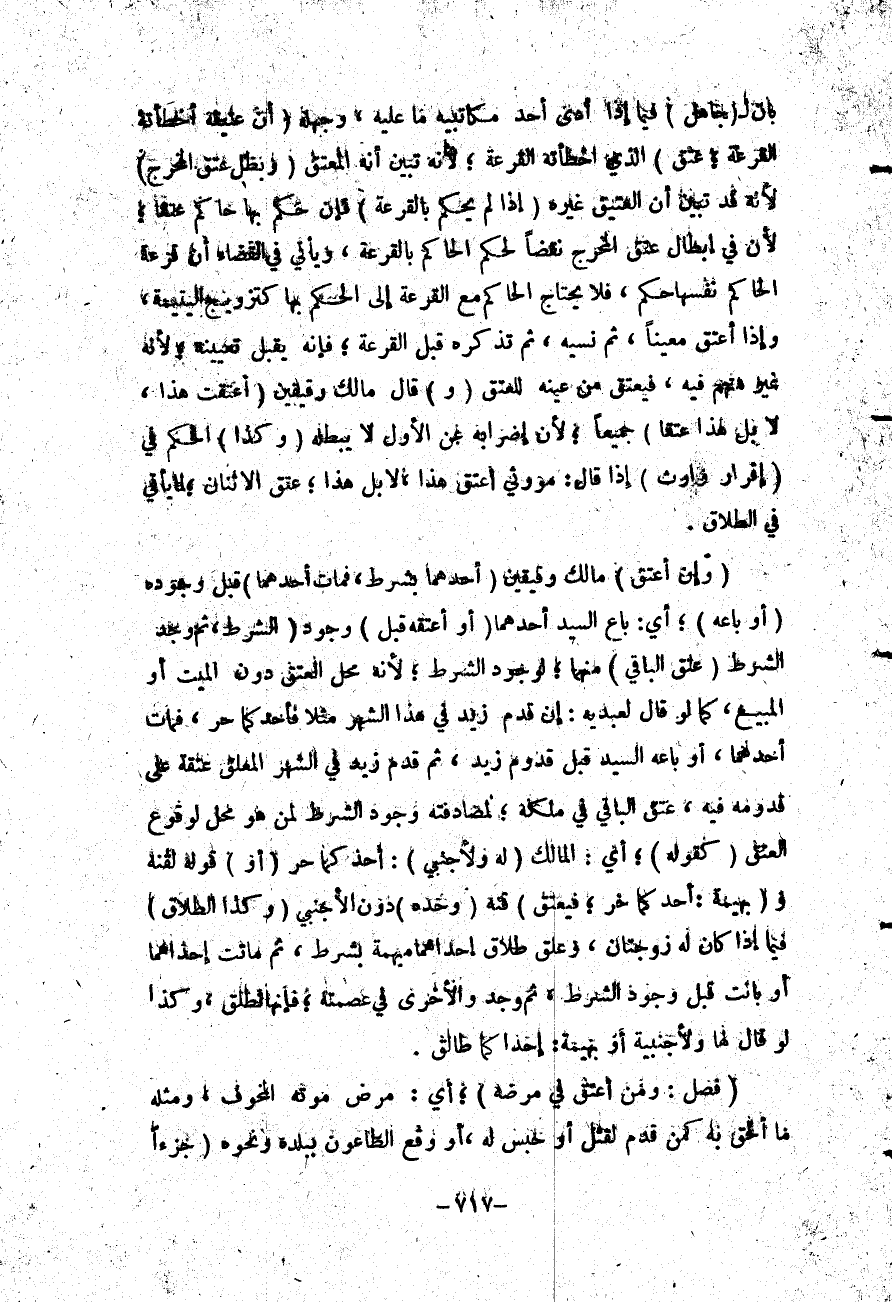 بان لـ ( جاهل ) فيما إذا أعتق أحد مكاتبيه ما عليه ، وجهة ( أن عتيقه أخطأته
القرعة ؛ عتق ) الذي اخطأته القرعة ؛ لأنه تبين أنه المعتق ( وبطل عتق المخرج )
لأنه قد تبين أن العتيق غيره ( إذا لم يحكم بالقرعة ) فإن حكم بها حاكم عتقا ؛
لأن في ابطال عتق المخرج نقضاً لحكم الحاكم بالقرعة ، ويأتي في القضاء أن قرعة
الحاكم نفسها حكم ، فلا يحتاج الحاكم مع القرعة إلى الحكم بها كتزويج اليتيمة ،
وإذا أعتق معيناً ، ثم نسيه ، ثم تذكره قبل القرعة ؛ فإنه يقبل تعيينه ؛ لأنه
غير متهم فيه ، فيعتق من عينه للعتق ( و ) قال مالك رقيقين ( أعتقت هذا ،
لا بل هذا عتقا ) جميعاً ؛ لأن إضرابه عن الأول لا يبطله ( وكذا ) الحكم في
( إقرار وارث ) إذا قال : موروثي أعتق هذا ، لا بل هذا ؛ عتق الاثنان ؛ لما يأتي
في الطلاق .
( وإن أعتق ) مالك رقيقين ( أحدهما بشرط ، فمات أحدهما ) قبل وجوده
( أو باعه ) ؛ أي : باع السيد أحدهما ( أو أعتقه قبل ) وجود ( الشرط ، ثم وجد
الشرط ( عتق الباقي ) منهما ؛ لوجود الشرط ؛ لأنه محل العتق دون الميت أو
المبيع ، كما لو قال لعبديه : إن قدم زيد في هذا الشهر مثلا فأحدكما حر ، فمات
أحدهما ، أو باعه السيد قبل قدوم زيد ، ثم قدم زيد في الشهر المعلق عتقه على
قدومه فيه ، عتق الباقي في ملكه ؛ لمصادفته وجود الشرط لمن هو محل لوقوع
العتق ( كقوله ) ؛ أي : المالك ( له ولأجنبي ) : أحدكما حر ( أو ) قوله لقنه
و ( بهيمة : أحدكما حر ؛ فيعتق ) قنه ( وحده ) دون الأجنبي ( وكذا الطلاق )
فيما إذا كان له زوجتان ، وعلق طلاق احداهما مبهمة بشرط ، ثم ماتت إحداهما
أو بانت قبل وجود الشرط ، ثم وجد والأخرى في عصمته ؛ فإنها تطلق ، وكذا
لو قال لها ولأجنبية أو بهيمة : إحداكما طالق .
( فصل : ومن أعتق في مرضه ) ؛ أي : مرض موته المخوف ، ومثله
ما ألحق به كمن قدم لقتل أو حبس له ، أو وقع الطاعون ببلده ونحوه ( جزءاً
-٧١٧-